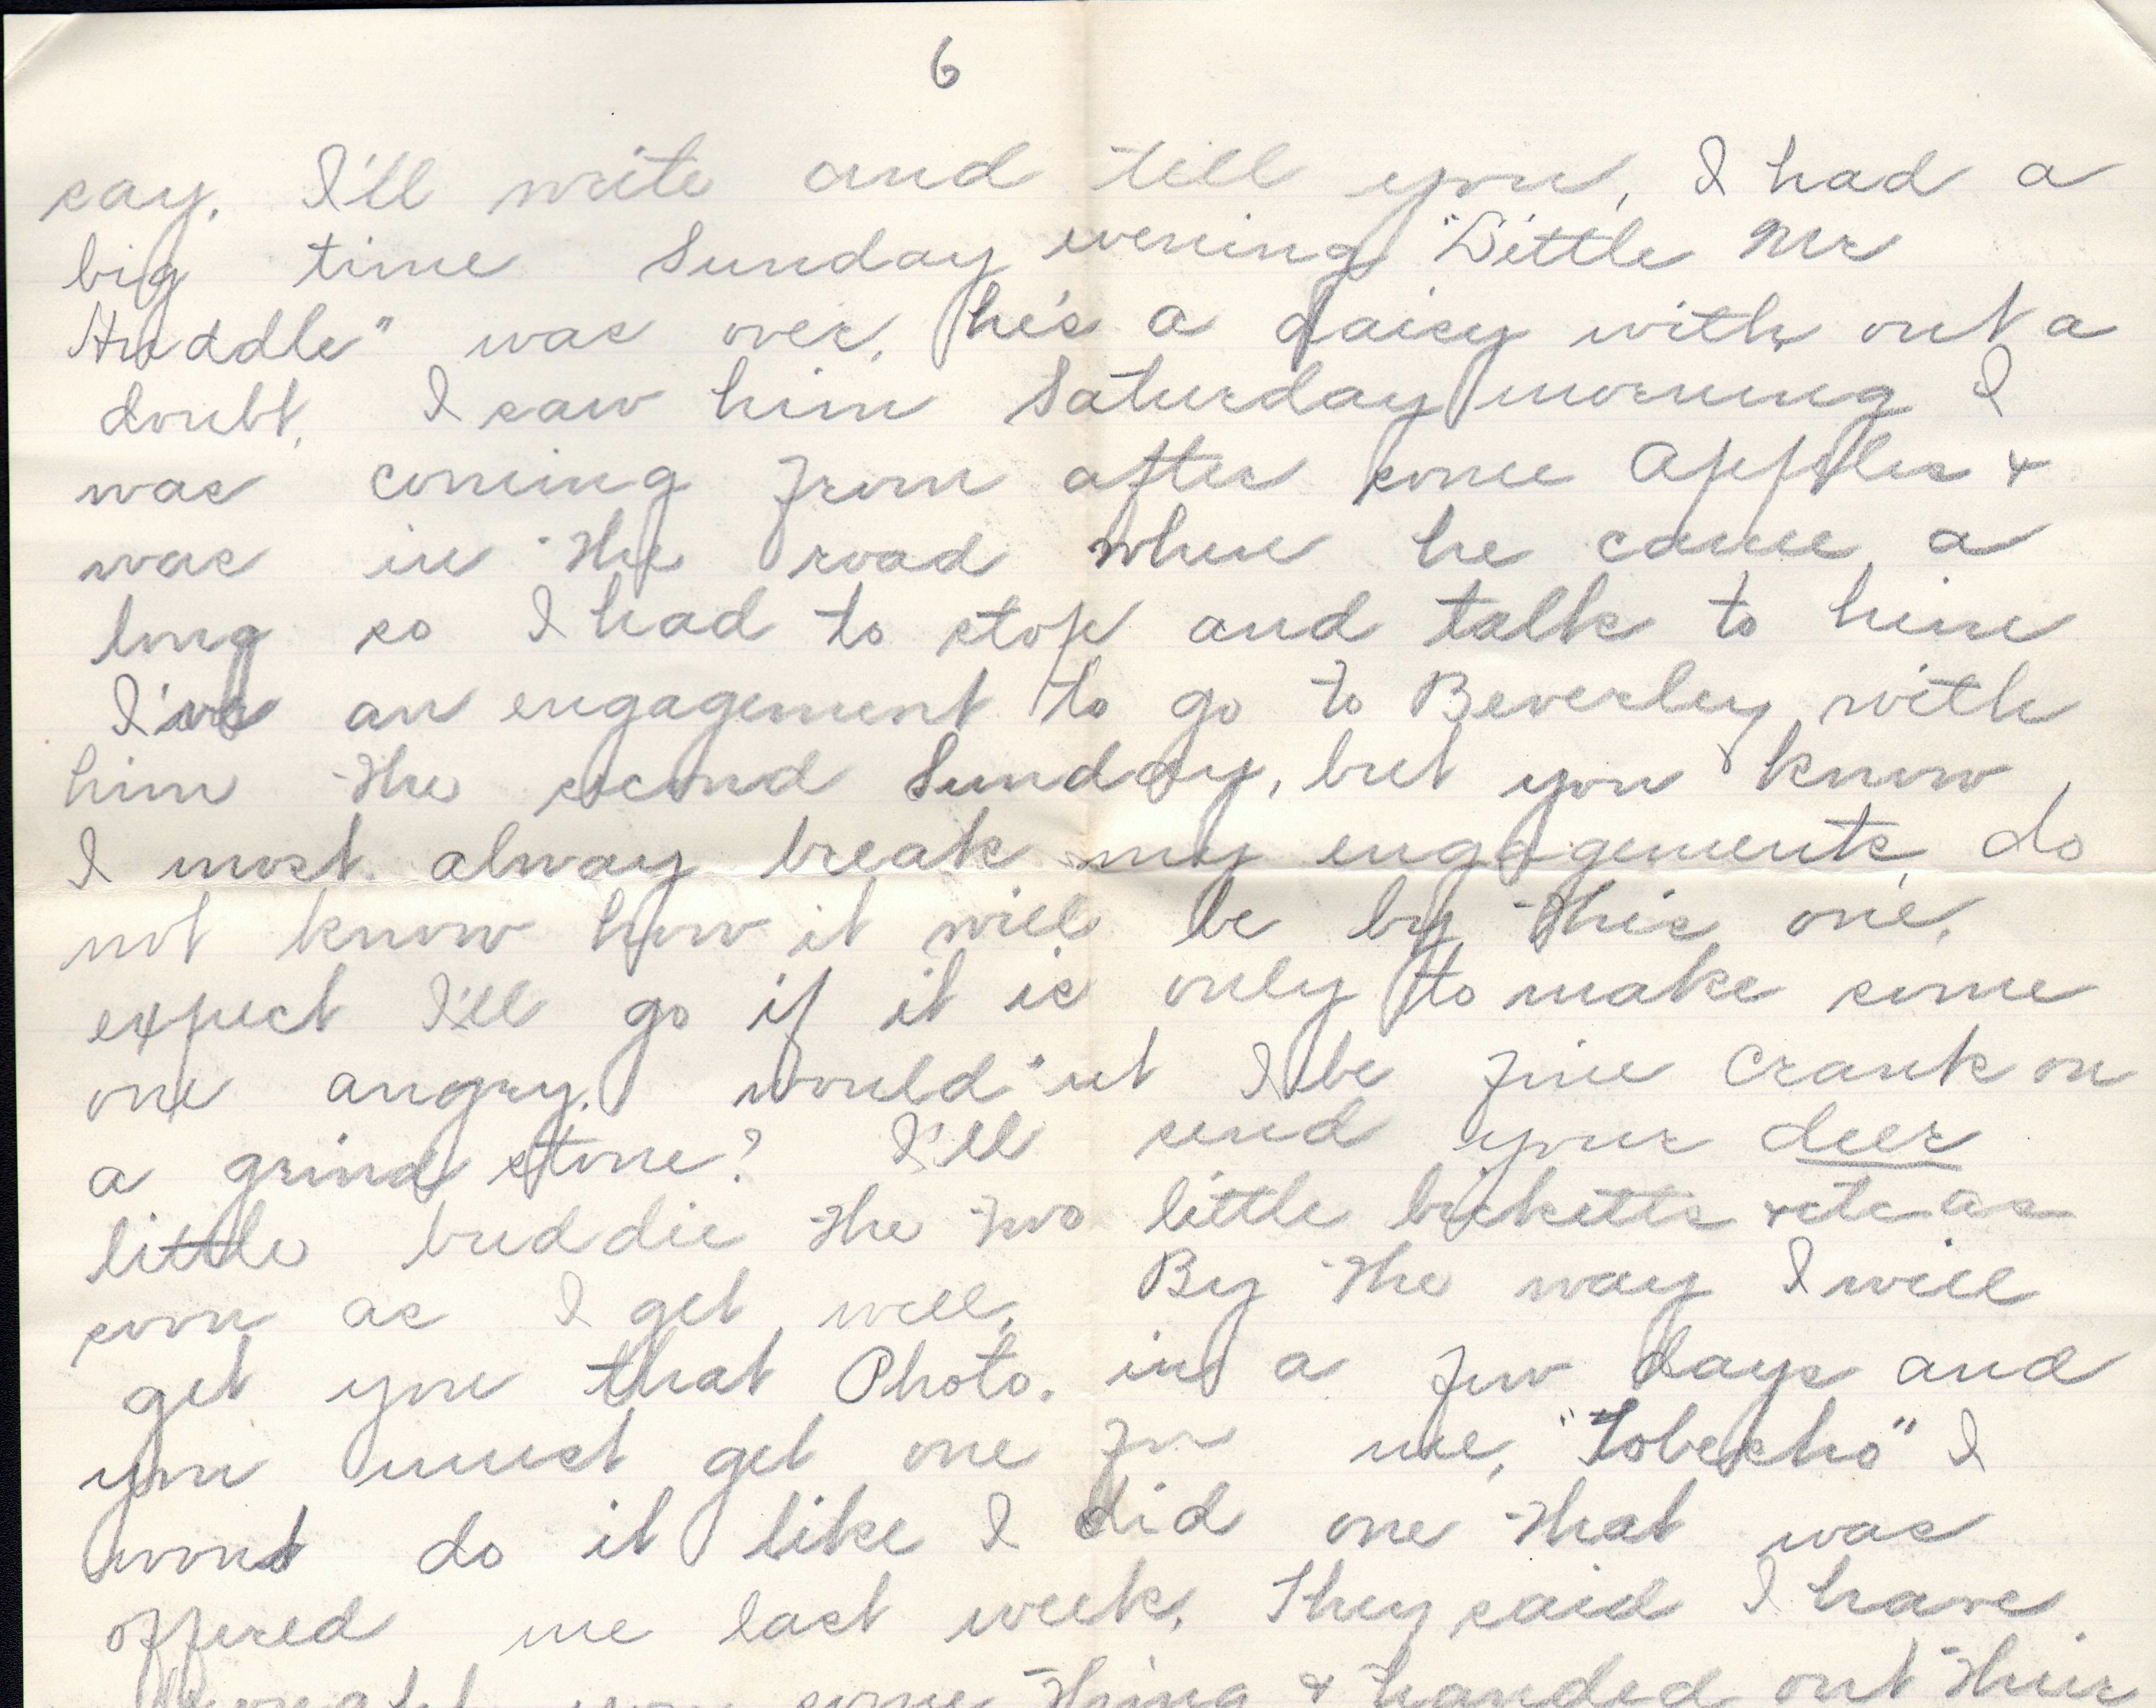 6
say. I'll write and tell you, I had a
big time Sunday evening "Little Mr
Huddle" was over. he's a daisy with out a
doubt. I saw him Saturday morning I
was coming from after some Apples &
was in the road when he came a
long so I had to stop and talk to him
I've an engagement to go to Beverley with
him the second Sunday, but you know
I most alway break my engagements, do
not know how it will be by this one.
expect I'll go if it is only to make some
one angry. would'nt I be fine crank on
a grind stone? I'll send your deer
little buddie the two little &etc as
soon as I get well. By the way I will
get you that Photo. in a few days and
you must get one for me, I
wont do it like I did one that was
offered me last week. They said I have
brought you some thing & handed out their